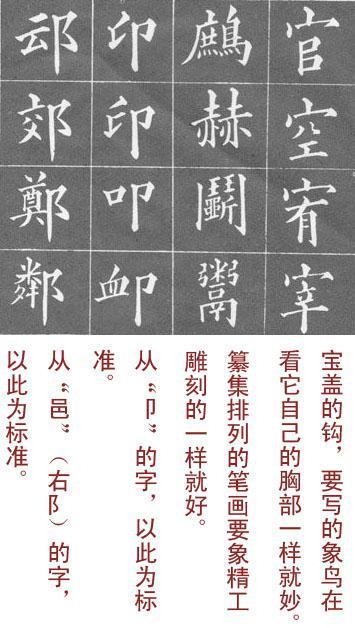 官空宥宰
鷓赫鬬鬻
印印叩卹
䢵郊鄭鄰
宝盖的钩，要写的象鸟在
看它自己的胸部一样就妙。
纂集排列的笔画要象精工
雕刻的一样就好。
从“卩”的字，以此为标
准。
从“邑”（右阝）的字，
以此为标准。